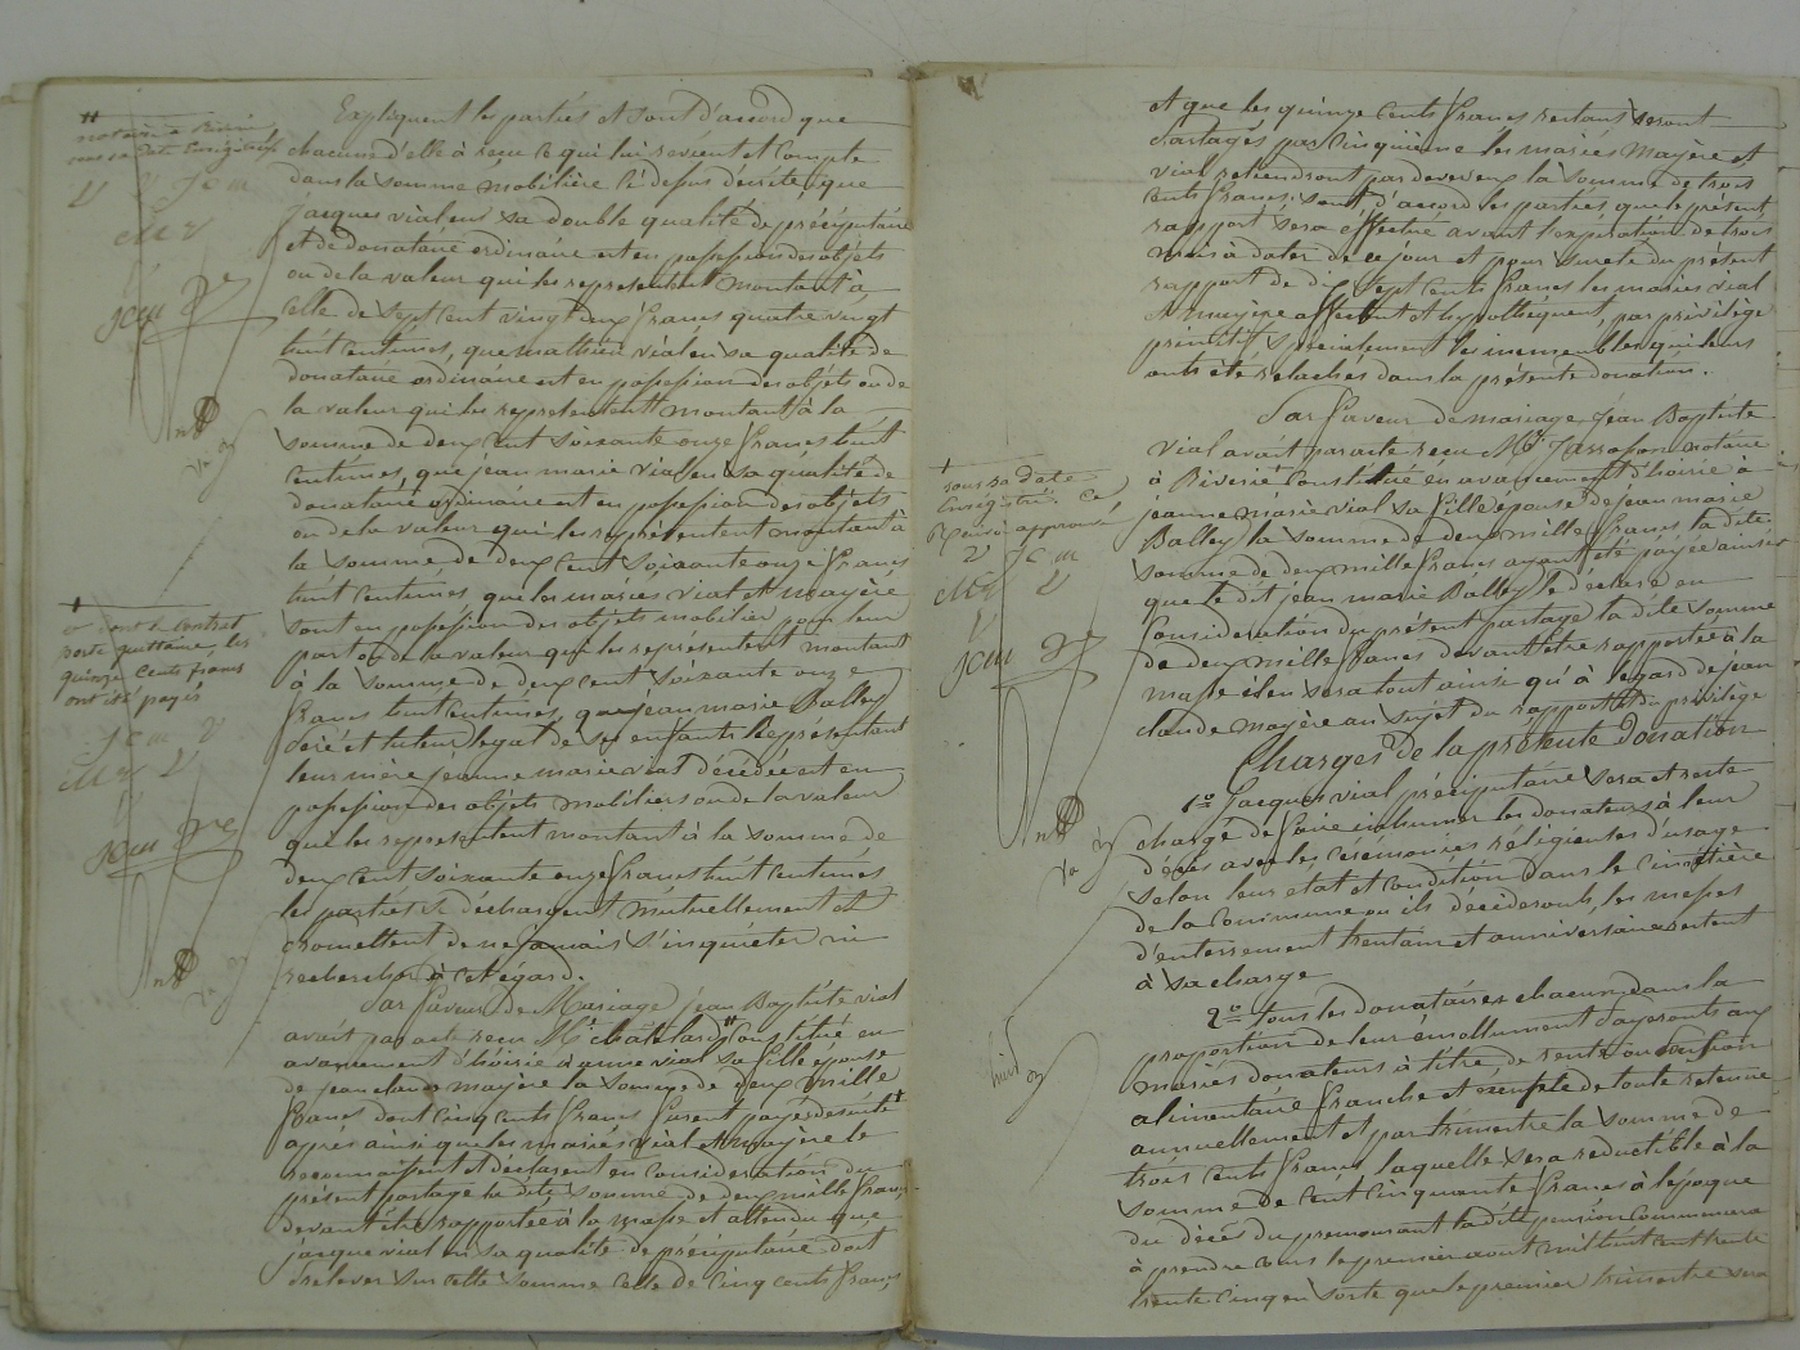 Expliquent les parties et sont d'accord que
chacune d'elle à reçu ce qui lui revient et compte
dans la somme mobilière ci dessus décrite, que
Jacques vial en sa double qualité de préciputaire
et de donataire ordinaire est en possession des objets
ou de la valeur qui les representent montant à
celle de sept cent vingt deux francs quatre vingt
huit centimes, que mathieu vial en sa qualité de
donataire ordinaire est en possession des objets ou de
la valeur qui les representent montant à la
somme de deux cent soixante onze francs huit
centimes, que jean marie vial en sa qualité de
donataire ordinaire est en possession des objets
ou de la valeur qui les représentent montant à
la somme de deux cent soixante onze francs
huit centimes, que les mariés vial et mayère
sont en possession des objets mobilier pour leur
part ou de la valeur qui les représentent montant
à la somme de deux cent soixante onze
francs huit centimes, que jean marie Balley
père et tuteur legal de ses enfants Représentant
leur mère jeanne marie vial décédée est en
possession des objets mobiliers ou de la valeur
qui les representent montant à la somme de
deux cent soixante onze francs huit centimes
les parties se déchargent mutuellement et
promettent de ne jamais s'inquieter ni
rechercher à cet égard.
Par faveur de Mariage jean Baptiste vial
avait par acte reçu Me chatelard # constitué en
avancement d'hoirie à anne vial sa fille épouse
de jean claude mayère la somme de deux mille
francs dont cinq cents francs furent payés de suite +
après ainsi que les mariés vial et mayère le
reconnaissent et déclarent en consideration du
présent partage la dite somme de deux mille francs
devant être rapportée à la masse et attendu que
jacque vial en sa qualité de préciputaire doit
prelever sur cette somme celle de cinq cents francs
#
notaire à Riverie
sous sa date Enrégistré
V V JCM
MV
JCM
+
v dont le contrat
porte quittance, les
quinze cents francs
ont été payés
JCM V
MV V
JCM
et que les quinze cents francs restans seront
partagés par cinquième les mariés Mayère et
vial retiendront par devers eux la somme de trois
cents francs; sont d'accord les parties que le présent
rapport sera éffectué avant l'expiration de trois
mois à dater de ce jour et pour sureté du présent
rapport de dix sept cents francs les mariés vial
et mayère affectent et hypothéquent, par privilège
primitif spécialement les immeubles qui leurs
onts été relachés dans la présente donation.
Par faveur de mariage Jean Baptiste
vial avait par acte reçu Me Jassoson notaire
à Riverie constitué en avancement d'hoirie à
jeanne marie vial sa fille épouse de jean marie
Balley la somme de deux mille francs la dite
somme de deux mille francs ayant été payée ainsi
que le dit jean marie Balley le déclare en
Consideration du présent partage la dite somme
de deux mille francs devant être rapportée à la
masse il en sera tout ainsi qu'à l'egard de jean
claude mayère au sujet du rapport et du privilège
Charges de la présente Donation
1o Jacques vial préciputaire sera et reste
chargé de faire inhumer les donateurs à leur
décès avec les cérémonies réligieuses d'usage
selon leur etat et condition dans le cimetière
de la commune ou ils décéderonts, les messes
d'enterrement trentain et anniversaire restent
à sa charge
2o tous les donataires chacun dans la
proportion de leur émollument payeronts aux
mariés donateurs à titre de rente ou pension
alimentaire franche et exempte de toute retenue
annuellement et par trimestre la somme de
trois cents francs, laquelle sera reductible à la
somme de cent cinquante francs à l'époque
du décès du premourant la dite pension commencera
à prendre cours le premier aout mil huit cent trente
trente cinq en sorte que le premier trimestre sera
+
sous sa date
Enrégistré. ce
Renvoi approuvé
V JCM
MV V
JCM
huit